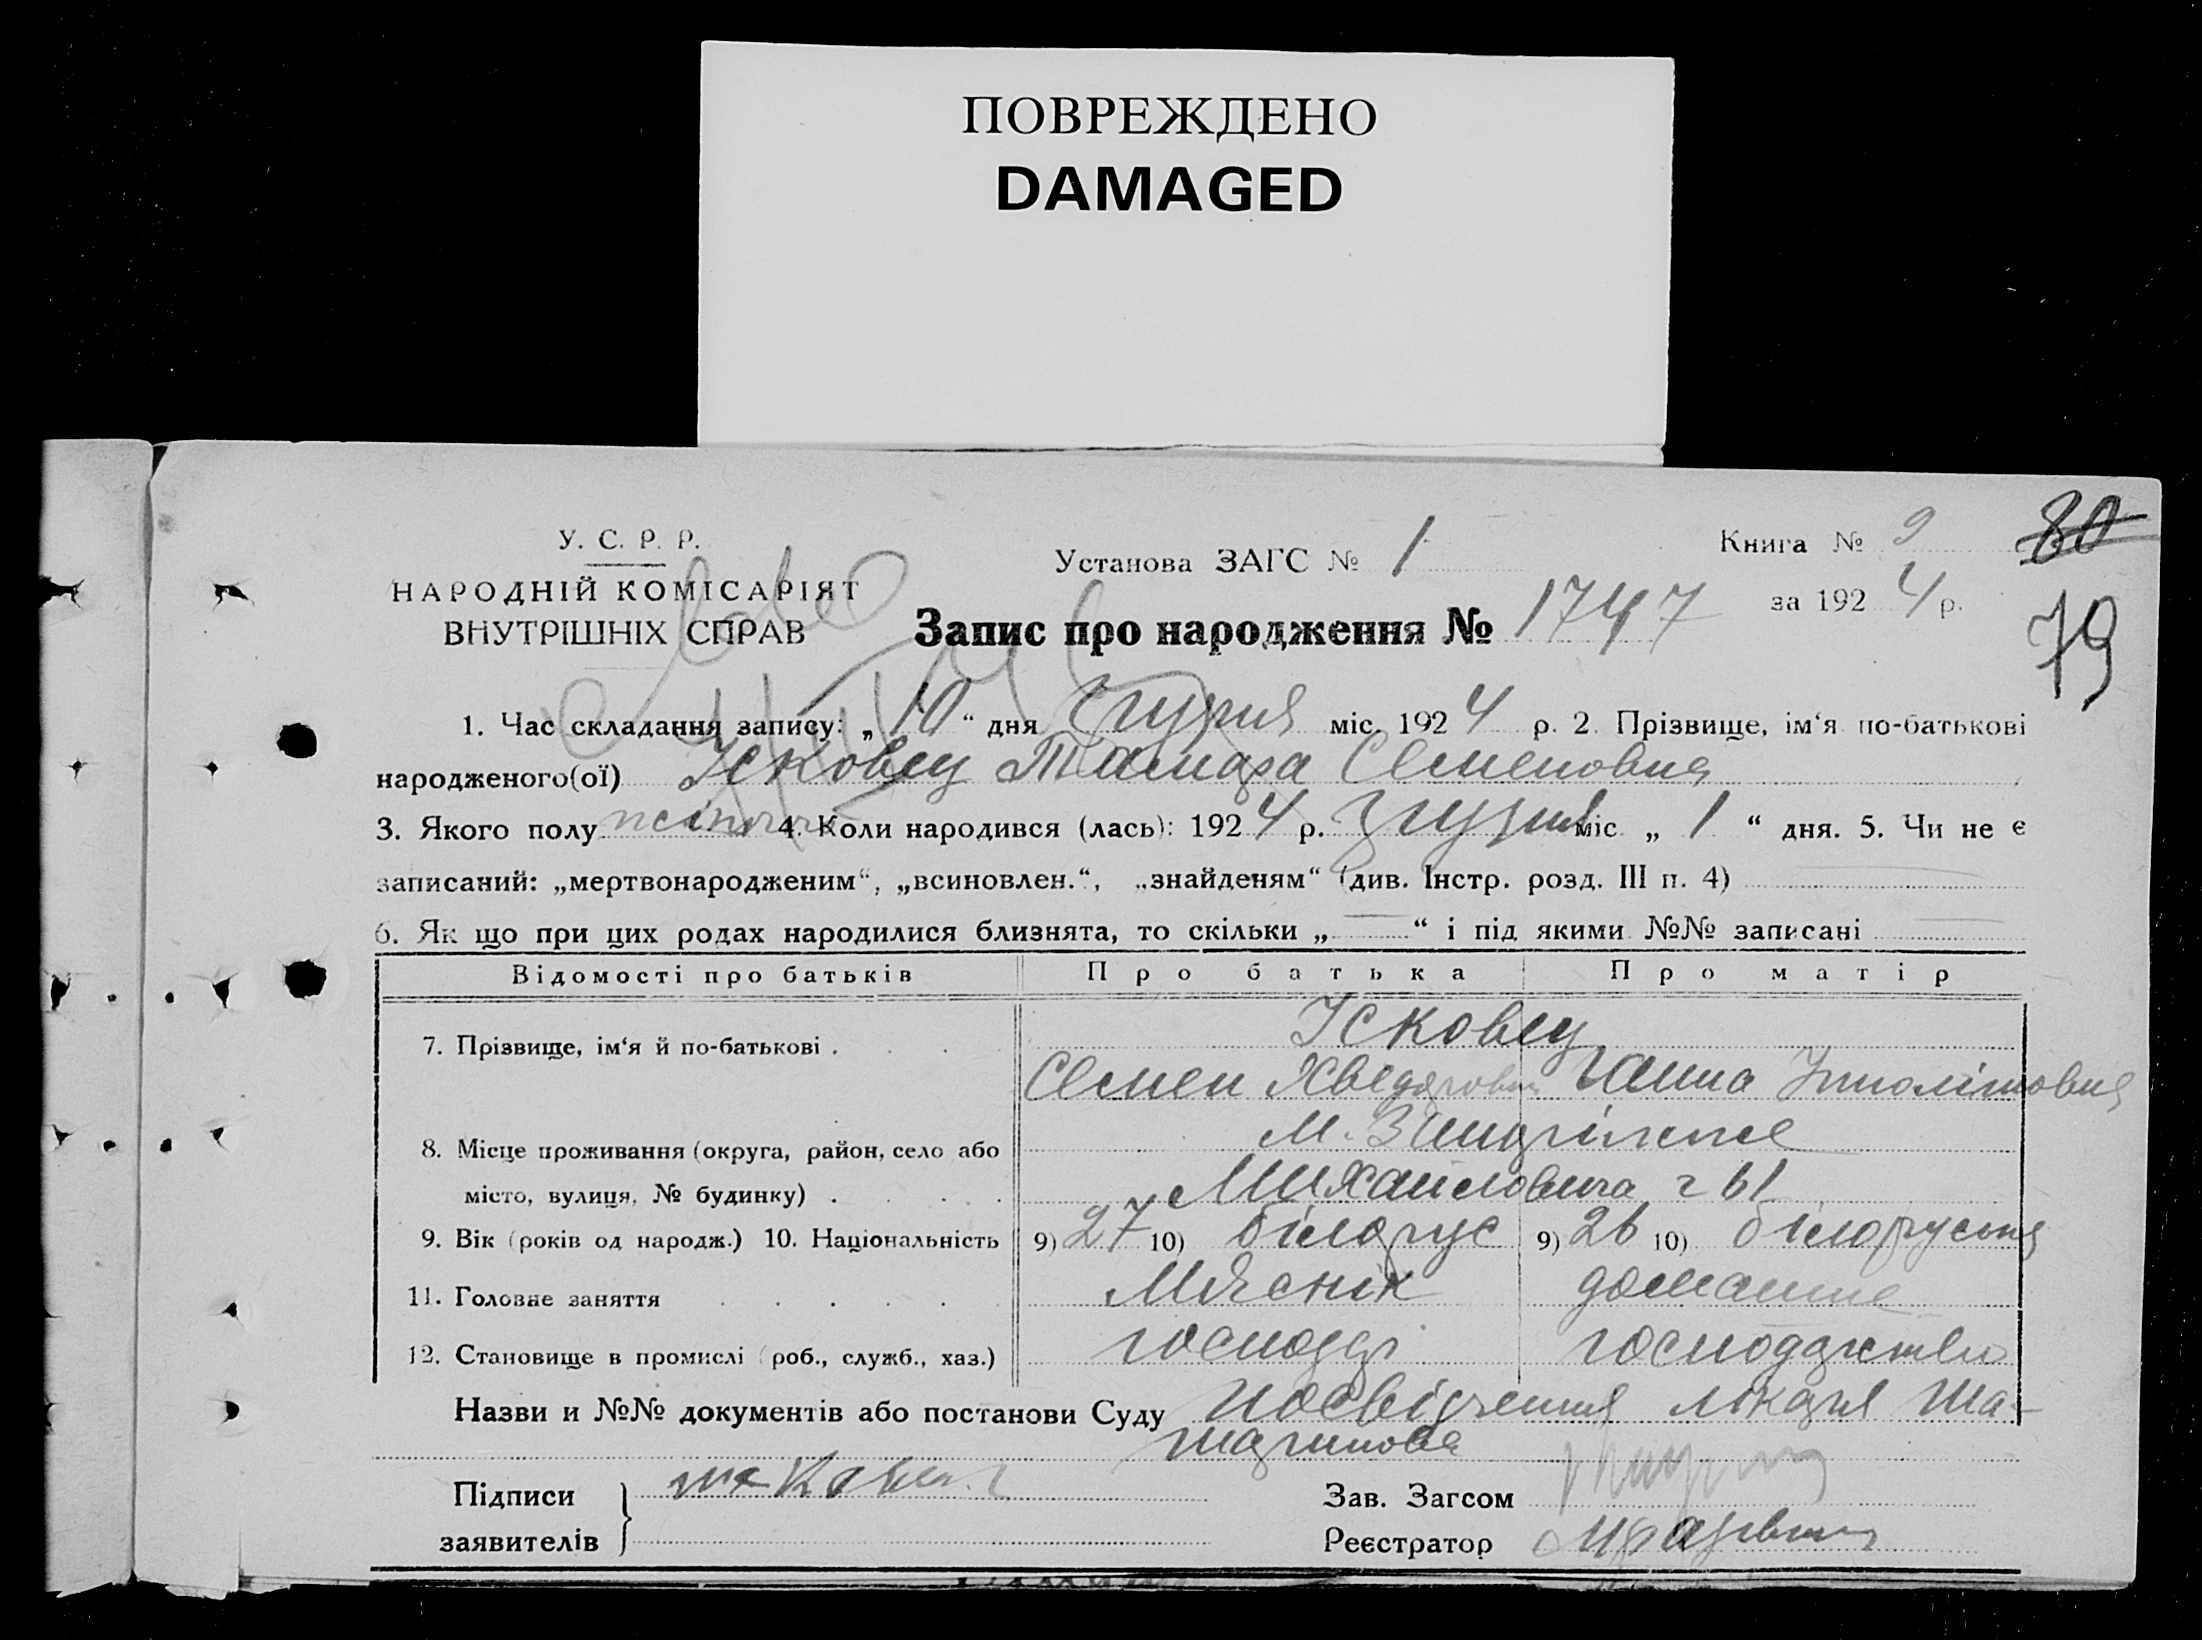 ПОВРЕЖДЕНО
DAMAGED
У. С. Р. Р.
НАРОДНІЙ КОМІСАРІЯТ
ВНУТРІШНІХ СПРАВ
Установа ЗАГС № 1
Книга № 9 80
за 1924 р.
79
Запис про народження № 1747
1. Час складання запису: „10“ дня грудня міс. 1924 р. 2. Прізвище, ім‘я по-батькові
народженого(ої) Усковец Тамара Семеновна
3. Якого полу жіноч 4. Коли народився (лась): 1924 р. грудня міс „1“ дня. 5. Чи не є
записаний: „мертвонародженим“, „всиновлен.“, „знайденям“ (див. Інстр. розд. III п. 4)
6. Як що при цих родах народилися близнята, то скільки „—“ і під якими №№ записані —
Відомості про батьків Про батька Про матір
7. Прізвище, ім‘я й по-батькові . Усковец
Семен Хведорович Ганна Іполітовна
8. Місце проживання (округа, район, село або місто, вулиця, № будинку) . М.
Михайловича 61
9. Вік (років од народж.) 10. Національність 9) 27 10) білорус 9) 26 10) білоруська
11. Головне заняття Мяснік домашнє
12. Становище в промислі (роб., служб., хаз.) господар господарство
Назви и №№ документів або постанови Суду посвідчення лікаря Ша-
Підписи
заявителів
Зав. Загсом
Реєстратор